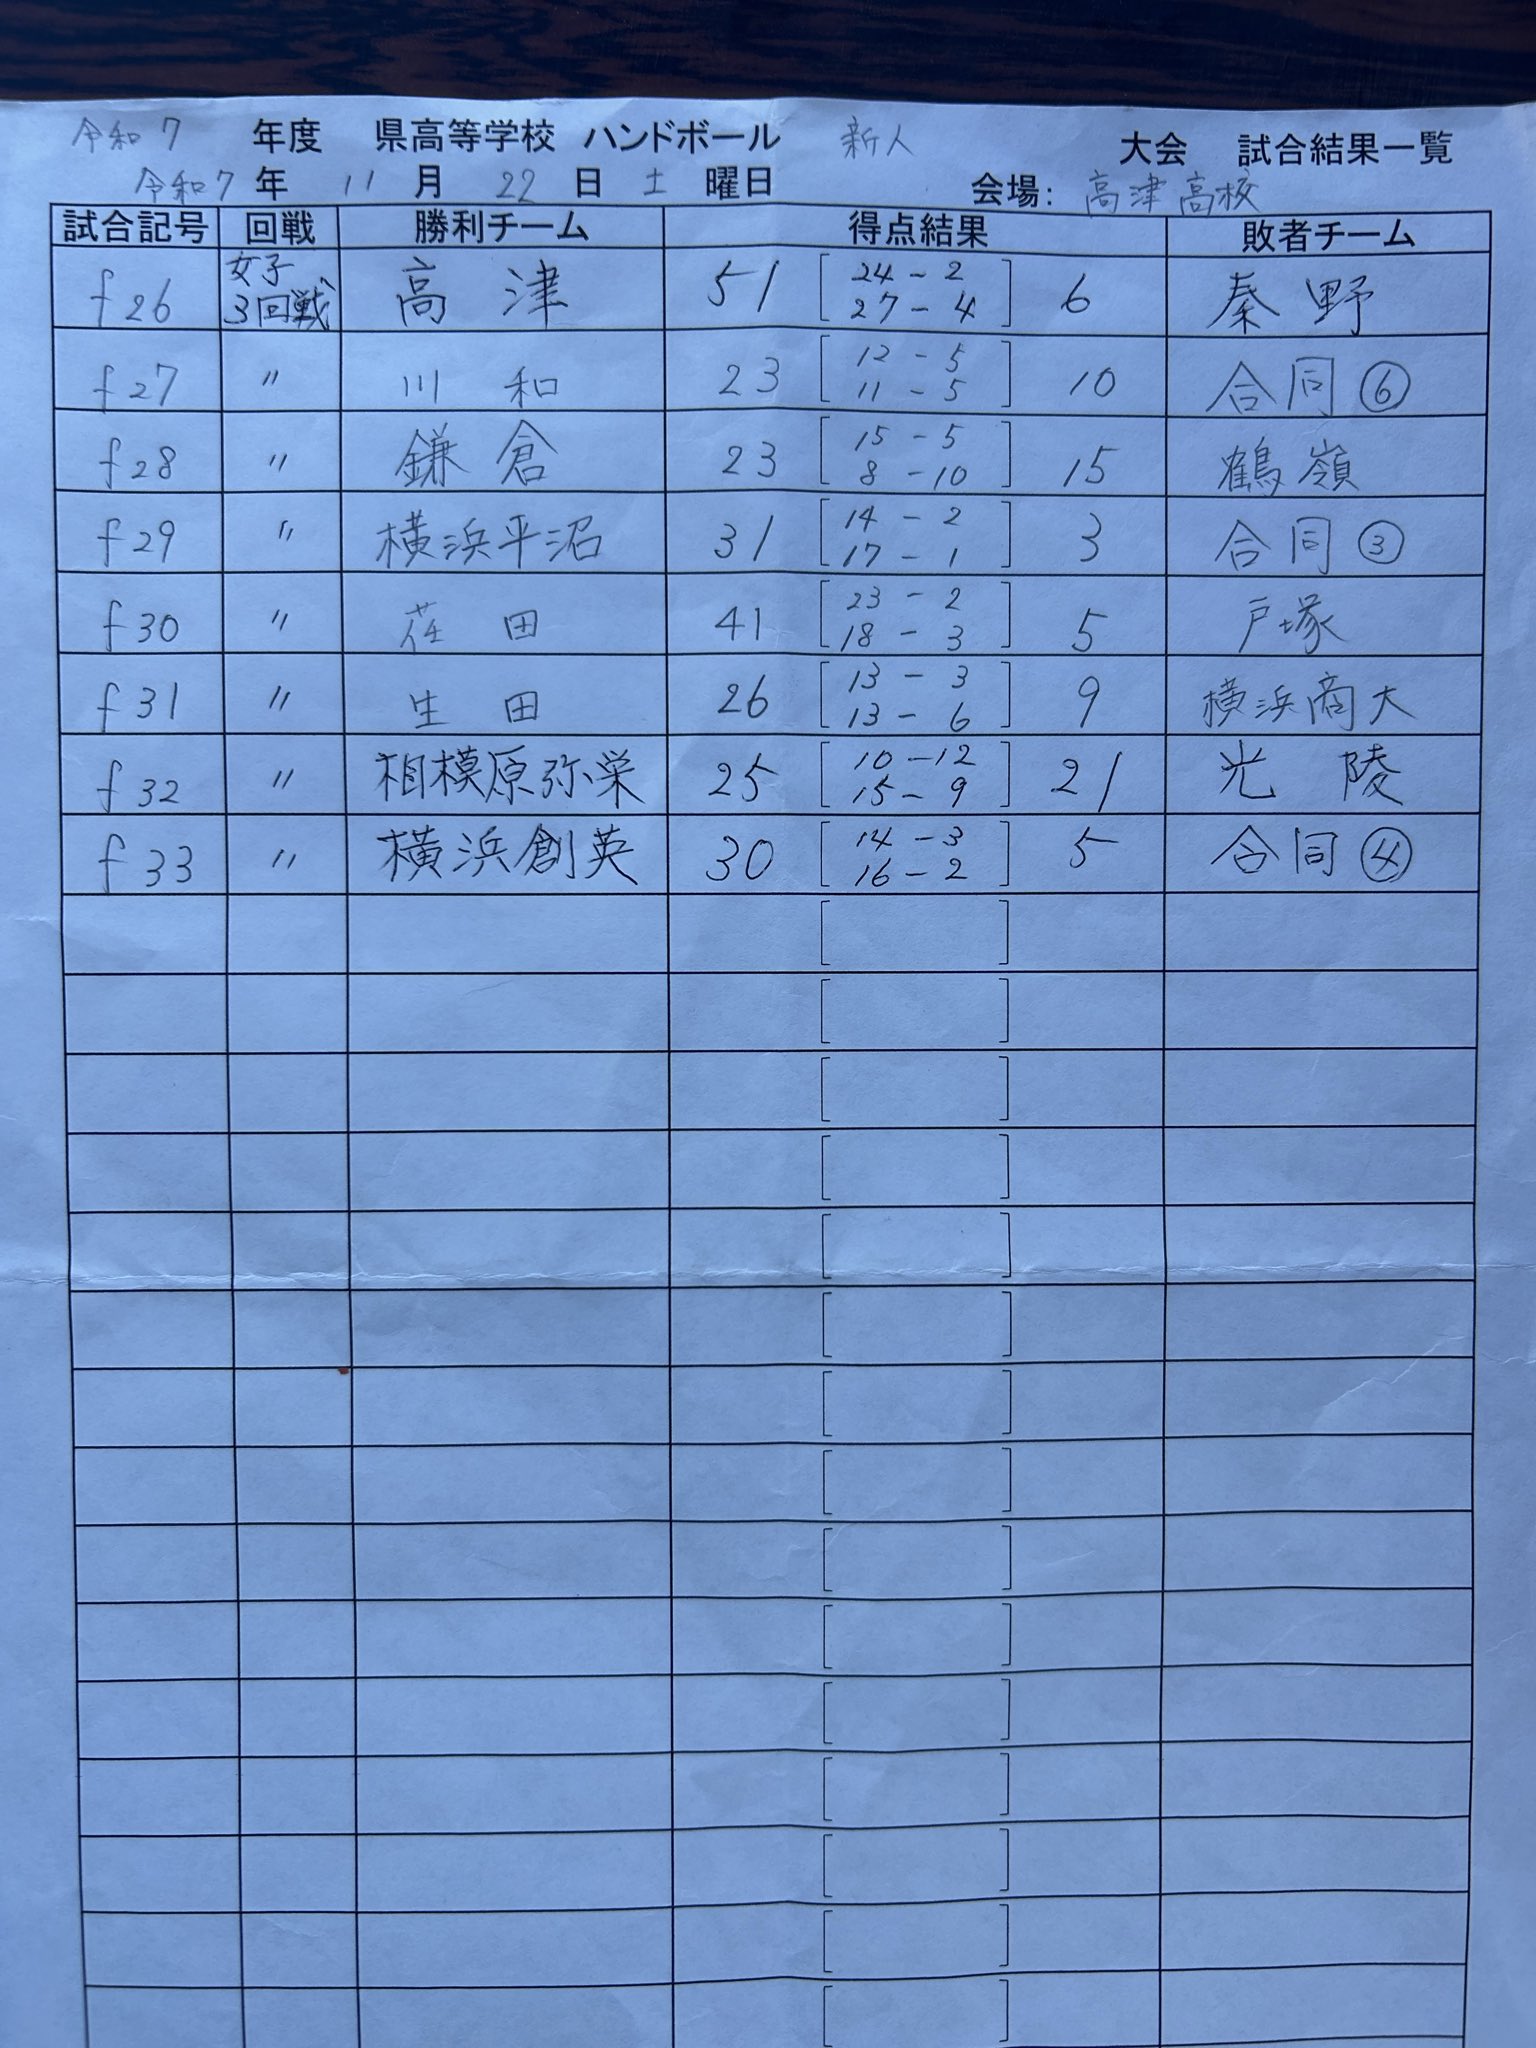 令和7 年度 県高等学校 ハンドボール 新人 大会 試合結果一覧
令和7 年 11 月 22 日 土 曜日 会場: 高津高校
試合記号 回戦 勝利チーム 得点結果 敗者チーム
f26 女子 3回戦 高津 51 [24-2 27-4] 6 秦野
f27 〃 川和 23 [12-5 11-5] 10 合同⑥
f28 〃 鎌倉 23 [15-5 8-10] 15 鶴嶺
f29 〃 横浜平沼 31 [14-2 17-1] 3 合同③
f30 〃 荏田 41 [23-2 18-3] 5 戸塚
f31 〃 生田 26 [13-3 13-6] 9 横浜商大
f32 〃 相模原弥栄 25 [10-12 15-9] 21 光陵
f33 〃 横浜創英 30 [14-3 16-2] 5 合同④